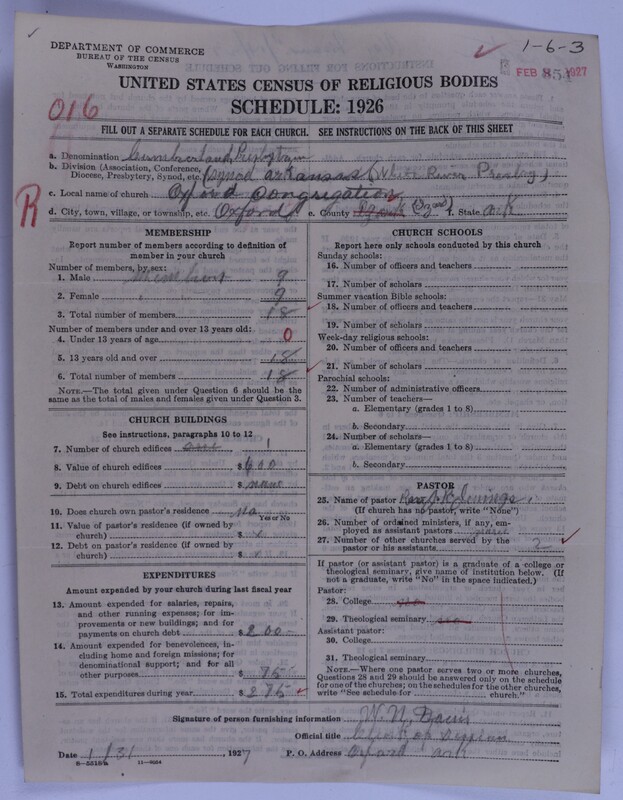 1-6-3
DEPARTMENT OF COMMERCE
BUREAU OF THE CENSUS
WASHINGTON
FEB 8 1927
UNITED STATES CENSUS OF RELIGIOUS BODIES
SCHEDULE: 1926
016
FILL OUT A SEPARATE SCHEDULE FOR EACH CHURCH. SEE INSTRUCTIONS ON THE BACK OF THIS SHEET
a. Denomination Cumberland Presbytern
b. Division (Association, Conference, Diocese, Presbytery, Synod, etc.) (Synod arkansas (White River Presby)
c. Local name of church Oxford Congrigation
R
d. City, town, village, or township, etc. Oxford e. County Izark (Izard) f. State ark
MEMBERSHIP
Report number of members according to definition of
member in your church
Number of members, by sex:
1. Male members 9
2. Female " 9
3. Total number of members 18
Number of members under and over 13 years old:
4. Under 13 years of age 0
5. 13 years old and over 18
6. Total number of members 18
NOTE.—The total given under Question 6 should be the
same as the total of males and females given under Question 3.
CHURCH BUILDINGS
See instructions, paragraphs 10 to 12
7. Number of church edifices one 1
8. Value of church edifices $600
9. Debt on church edifices $none
10. Does church own pastor's residence no
Yes or No
11. Value of pastor's residence (if owned by
church) $ x
12. Debt on pastor's residence (if owned by
church) $ x
EXPENDITURES
Amount expended by your church during last fiscal year
13. Amount expended for salaries, repairs,
and other running expenses; for im-
provements or new buildings; and for
payments on church debt $200
14. Amount expended for benevolences, in-
cluding home and foreign missions; for
denominational support; and for all
other purposes $ 75
15. Total expenditures during year $275
CHURCH SCHOOLS
Report here only schools conducted by this church
Sunday schools:
16. Number of officers and teachers
17. Number of scholars
Summer vacation Bible schools:
18. Number of officers and teachers
19. Number of scholars
Week-day religious schools:
20. Number of officers and teachers
21. Number of scholars
Parochial schools:
22. Number of administrative officers
23. Number of teachers—
a. Elementary (grades 1 to 8)
b. Secondary
24. Number of scholars—
a. Elementary (grades 1 to 8)
b. Secondary
PASTOR
25. Name of pastor
(If church has no pastor, write "None")
26. Number of ordained ministers, if any, em-
ployed as assistant pastors
27. Number of other churches served by the
pastor or his assistants 2
If pastor (or assistant pastor) is a graduate of a college or
theological seminary, give name of institution below. (If
not a graduate, write "No" in the space indicated.)
Pastor:
28. College
29. Theological seminary
Assistant pastor:
30. College
31. Theological seminary
NOTE.—Where one pastor serves two or more churches,
Questions 28 and 29 should be answered only on the schedule
for one of the churches; on the schedules for the other churches,
write "See schedule for church."
Signature of person furnishing information W. N. Davis
Official title Clerk of Session
Date 1/31, 1927 P. O. Address Oxford ark
8-5518a 11-9064